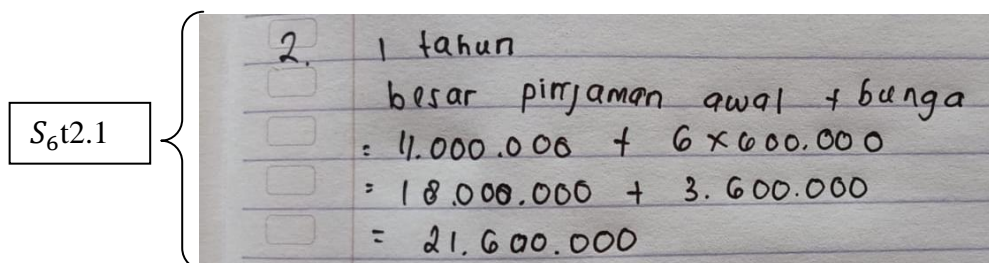 S₆t2.1
2. 1 tahun
besar pinjaman awal + bunga
= 11.000.000 + 6 × 600.000
= 18.000.000 + 3.600.000
= 21.600.000